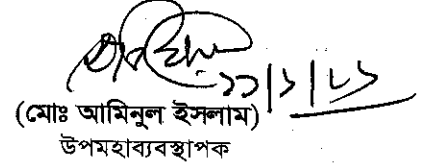 (মোঃ আমিনুল ইসলাম)
উপমহাব্যবস্থাপক